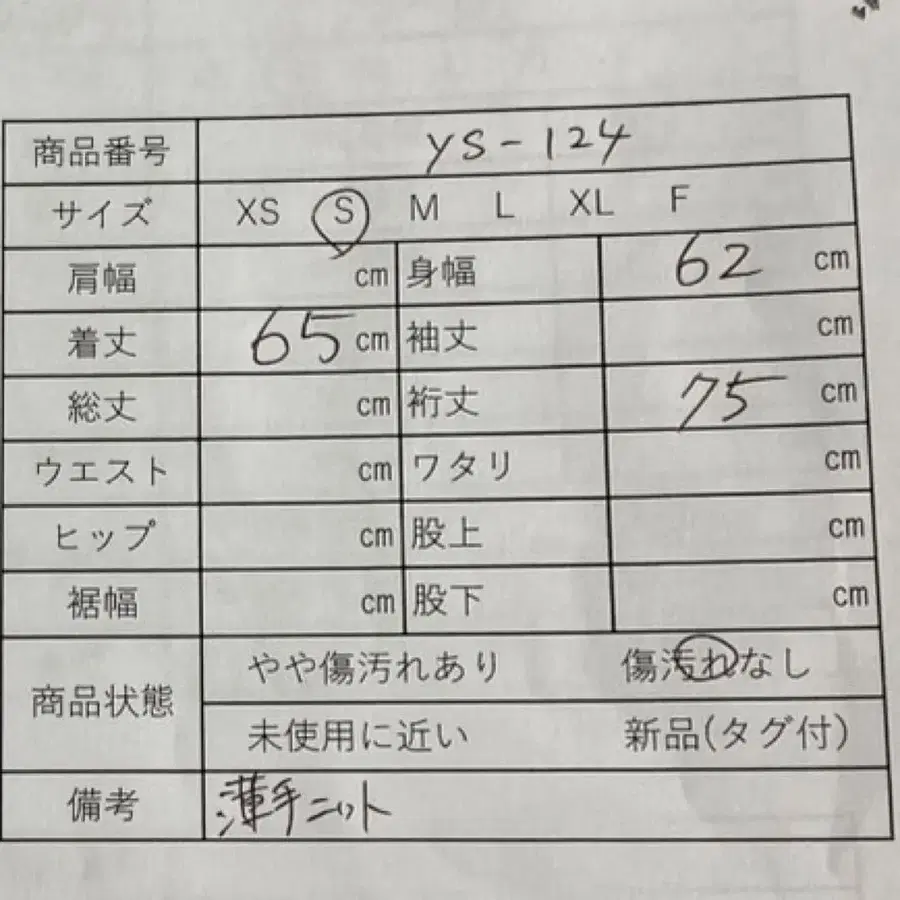 商品番号 YS-124
サイズ XS S M L XL F
肩幅 cm 身幅 62 cm
着丈 65 cm 袖丈 cm
総丈 cm 裄丈 75 cm
ウエスト cm ワタリ cm
ヒップ cm 股上 cm
裾幅 cm 股下 cm
商品状態 やや傷汚れあり 傷汚れなし
未使用に近い 新品(タグ付)
備考 薄手ニット